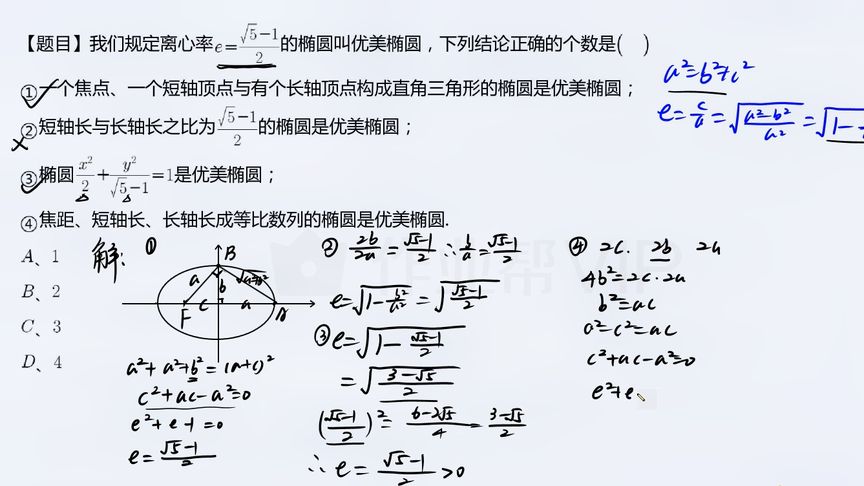 【题目】我们规定离心率e=(√5-1)/2的椭圆叫优美椭圆，下列结论正确的个数是(  )
①一个焦点、一个短轴顶点与有个长轴顶点构成直角三角形的椭圆是优美椭圆；
②短轴长与长轴长之比为(√5-1)/2的椭圆是优美椭圆；
③椭圆x²/2+y²/(√5-1)=1是优美椭圆；
④焦距、短轴长、长轴长成等比数列的椭圆是优美椭圆.
A、1
B、2
C、3
D、4
a²=b²+c²
e=c/a=√((a²-b²)/a²)=√(1-
解：①
B
a
b
√(a²+b²)
F
c
a
A
a²+a²+b²=(a+c)²
c²+ac-a²=0
e²+e-1=0
e=(√5-1)/2
② 2b/2a=(√5-1)/2 ∴b/a=(√5-1)/2
e=√(1-b²/a²)=√((√5-1)/2)
③e=√(1-(√5-1)/2)
=√((3-√5)/2)
((√5-1)/2)²=(6-2√5)/4=(3-√5)/2
∴e=(√5-1)/2>0
④ 2c. 2b 2a
4b²=2c·2a
b²=ac
a²-c²=ac
c²+ac-a²=0
e²+e